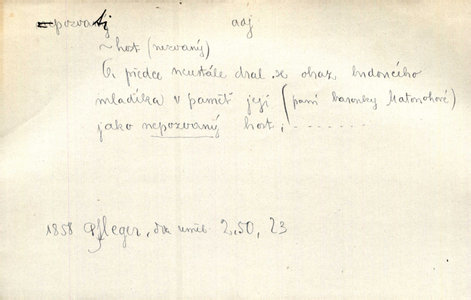 nepozvaný adj
~ host (nezvaný)
předce neustále dral se obraz hrdoucího
mladíka v paměť její (paní baronky Matonohové)
jako nepozvaný host, . . . . . . . .
1858 Pfleger, Dva uměl. 2,50, 23